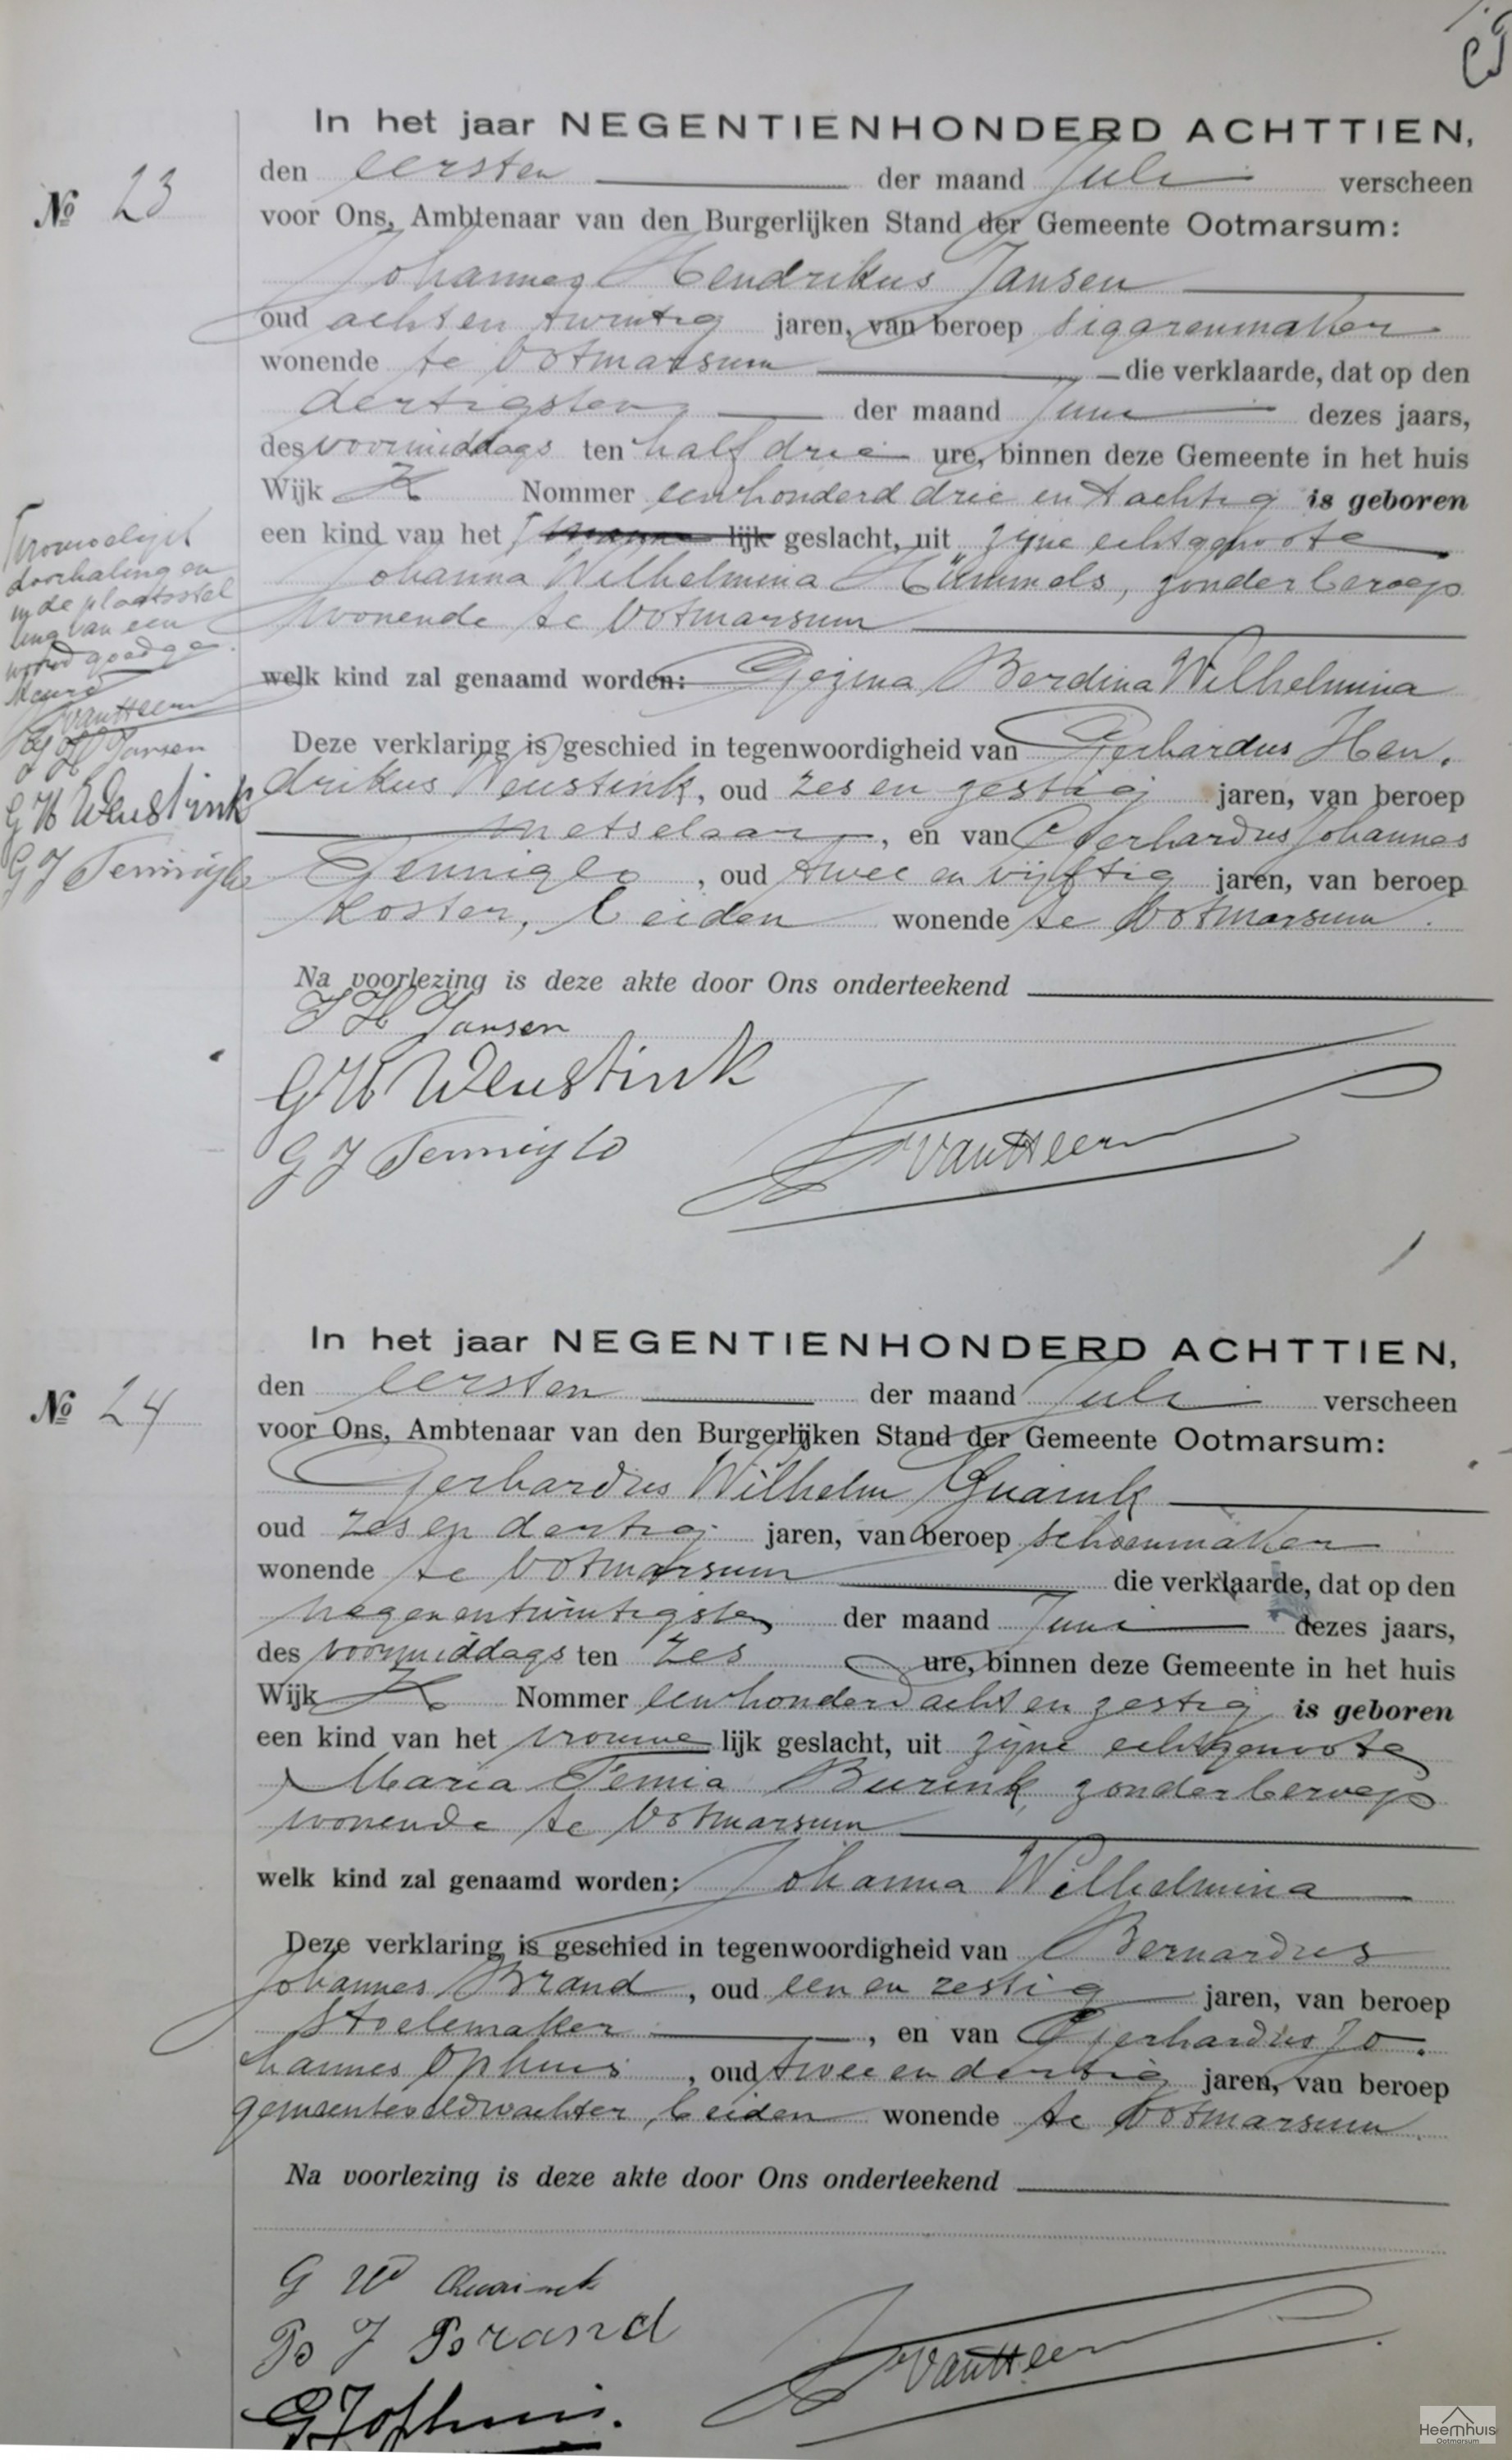 In het jaar NEGENTIENHONDERD ACHTTIEN,
den eersten der maand Juli verscheen
№ 23
voor Ons, Ambtenaar van den Burgerlijken Stand der Gemeente Ootmarsum:
Johannes Hendrikus Jansen
oud acht en twintig jaren, van beroep sigarenmaker
wonende te Ootmarsum die verklaarde, dat op den
dertigsten der maand Juni dezes jaars,
des voormiddags ten half drie ure, binnen deze Gemeente in het huis
Wijk K Nommer eenhonderd drie en tachtig is geboren
een kind van het lijk geslacht, uit zijne echtgenoote
Johanna Wilhelmina Hümmels, zonder beroep
wonende te Ootmarsum
welk kind zal genaamd worden: Gezina Berdina Wilhelmina
Vrouwelijk
doorhaling en
in de plaatsstel
ling van een
woord goedge
keurd
van Heen
J H Jansen
G H Weustink
G J Tenniglo
Deze verklaring is geschied in tegenwoordigheid van Gerhardus Hen.
drikus Weustink, oud zes en zestig jaren, van beroep
metselaar, en van Gerhardus Johannes
Tenniglo, oud twee en vijftig jaren, van beroep
koster, beiden wonende te Ootmarsum.
Na voorlezing is deze akte door Ons onderteekend
J H Jansen
G H Weustink
G J Tenniglo
In het jaar NEGENTIENHONDERD ACHTTIEN,
den eersten der maand Juli verscheen
№ 24
voor Ons, Ambtenaar van den Burgerlijken Stand der Gemeente Ootmarsum:
Gerhardus Wilhelm Quaink
oud zes en dertig jaren, van beroep schoenmaker
wonende te Ootmarsum die verklaarde, dat op den
negenentwintigsten der maand Juni dezes jaars,
des voormiddags ten zes ure, binnen deze Gemeente in het huis
Wijk K Nommer eenhonderd acht en zestig is geboren
een kind van het vrouwe lijk geslacht, uit zijne echtgenoote
Maria Femia Burink, zonder beroep
wonende te Ootmarsum
welk kind zal genaamd worden: Johanna Wilhelmina
Deze verklaring is geschied in tegenwoordigheid van Bernardus
Johannes Brand, oud een en zestig jaren, van beroep
stoelemaker, en van Gerhardus Jo.
hannes Ophuis, oud twee en dertig jaren, van beroep
gemeenteveldwachter, beiden wonende te Ootmarsum.
Na voorlezing is deze akte door Ons onderteekend
G W Quainck
B J Brand
G J Ophuis.
Heemhuis
Ootmarsum